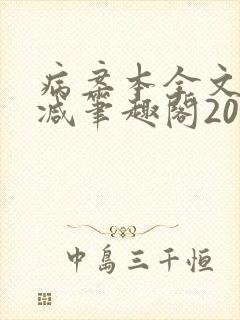 病案本全文
减笔趣阁20
中岛三千恒